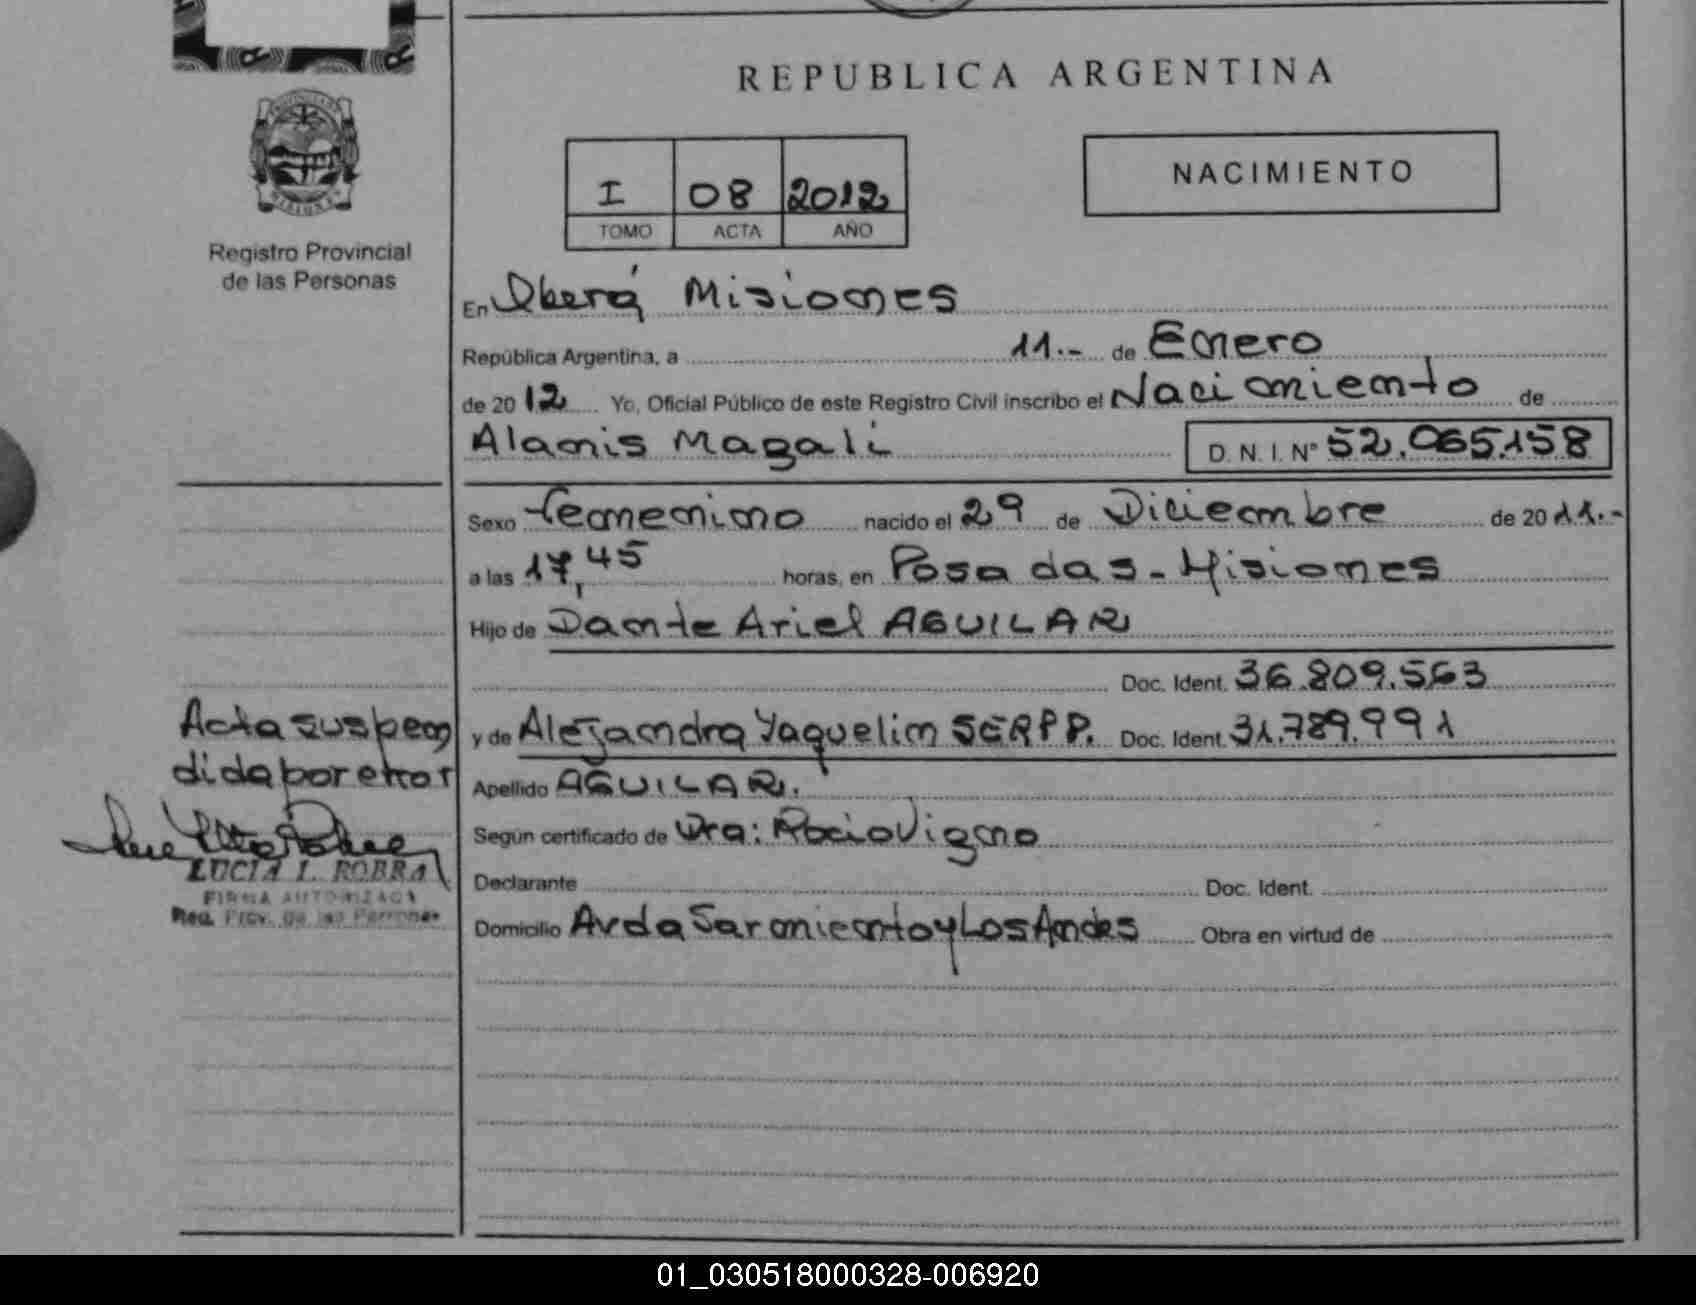 REPUBLICA ARGENTINA
NACIMIENTO
I 08 2012
TOMO ACTA AÑO
Registro Provincial
de las Personas
En Iberá Misiones
República Argentina, a 11.- de Enero
de 2012 Yo, Oficial Público de este Registro Civil inscribo el Nacimiento de
Alanis Magali D. N. I. N° 52.065.158
Sexo femenino nacido el 29 de Diciembre de 2011.-
a las 17,45 horas, en Posadas - Misiones
Hijo de Dante Ariel AGUILAR
Doc. Ident. 36.809.563
y de Alejandra Yaquelin SERPP. Doc. Ident. 31.789.991
Apellido AGUILAR.
Según certificado de Dra: Rocio Vigno
Declarante Doc. Ident.
Domicilio Avda Sarmiento y Los Andes Obra en virtud de
Acta suspen
dida por error
LUCIA I. ROBRA
FIRMA AUTORIZADA
Reg. Prov. de las Personas
01_030518000328-006920